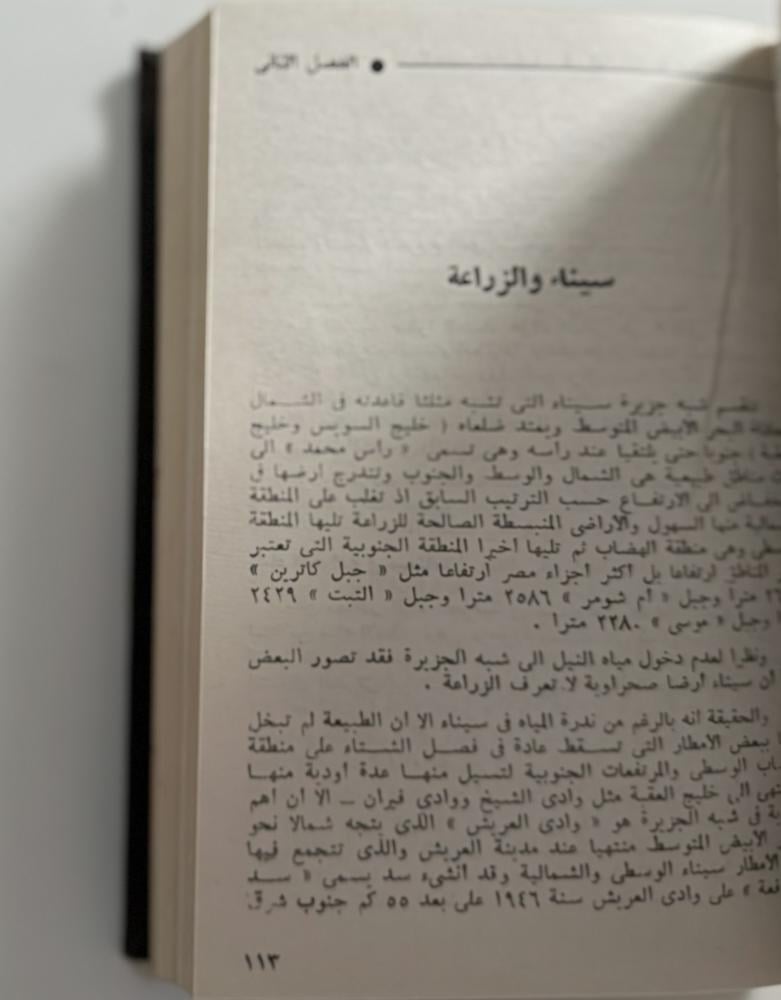 الفصل الثانى
سيناء والزراعة
تنقسم شبه جزيرة سيناء التى تشبه مثلثا قاعدته فى الشمال
البحر الابيض المتوسط ويمتد ضلعاه ( خليج السويس وخليج
جنوبا حتى يلتقيا عند رأسه وهى تسمى « رأس محمد » الى
مناطق طبيعية هى الشمال والوسط والجنوب وتتدرج ارضها فى
الى الارتفاع حسب الترتيب السابق اذ تغلب على المنطقة
منها السهول والاراضى المنبسطة الصالحة للزراعة تليها المنطقة
وهى منطقة الهضاب ثم تليها اخيرا المنطقة الجنوبية التى تعتبر
ارتفاعا بل اكثر اجزاء مصر ارتفاعا مثل « جبل كاترين »
مترا وجبل « أم شومر » ٢٥٨٦ مترا وجبل « الثبت » ٢٤٢٩
وجبل « موسى » ٢٢٨٠ مترا .
ونظرا لعدم دخول مياه النيل الى شبه الجزيرة فقد تصور البعض
أن سيناء أرضا صحراوية لا تعرف الزراعة .
والحقيقة انه بالرغم من ندرة المياه فى سيناء الا أن الطبيعة لم تبخل
ببعض الأمطار التى تسقط عادة فى فصل الشتاء على منطقة
الوسطى والمرتفعات الجنوبية لتسيل منها عدة أودية منها
الى خليج العقبة مثل وادى الشيخ ووادى فيران - الا أن أهم
فى شبه الجزيرة هو « وادى العريش » الذى يتجه شمالا نحو
الأبيض المتوسط منتهيا عند مدينة العريش والذى تتجمع فيها
الأمطار سيناء الوسطى والشمالية وقد أنشىء سد يسمى « سد
على وادى العريش سنة ١٩٤٦ على بعد ٥٥ كم جنوب شرق
١١٣